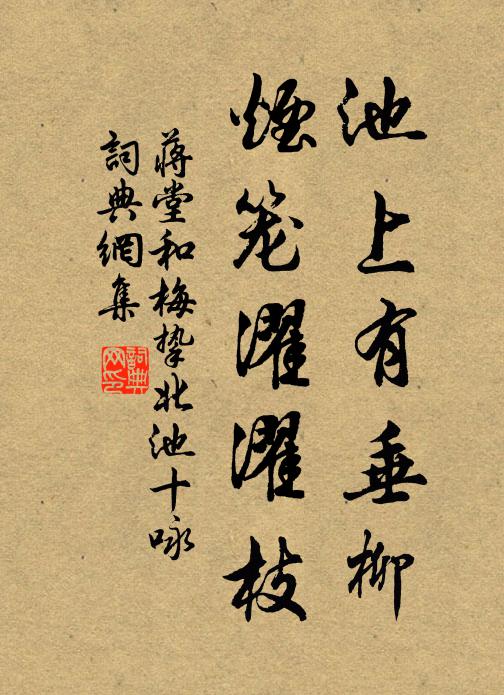 池上有垂柳
烟笼濯濯枝
蔣堂和梅摯北池十咏
詞典網集
詞典网印